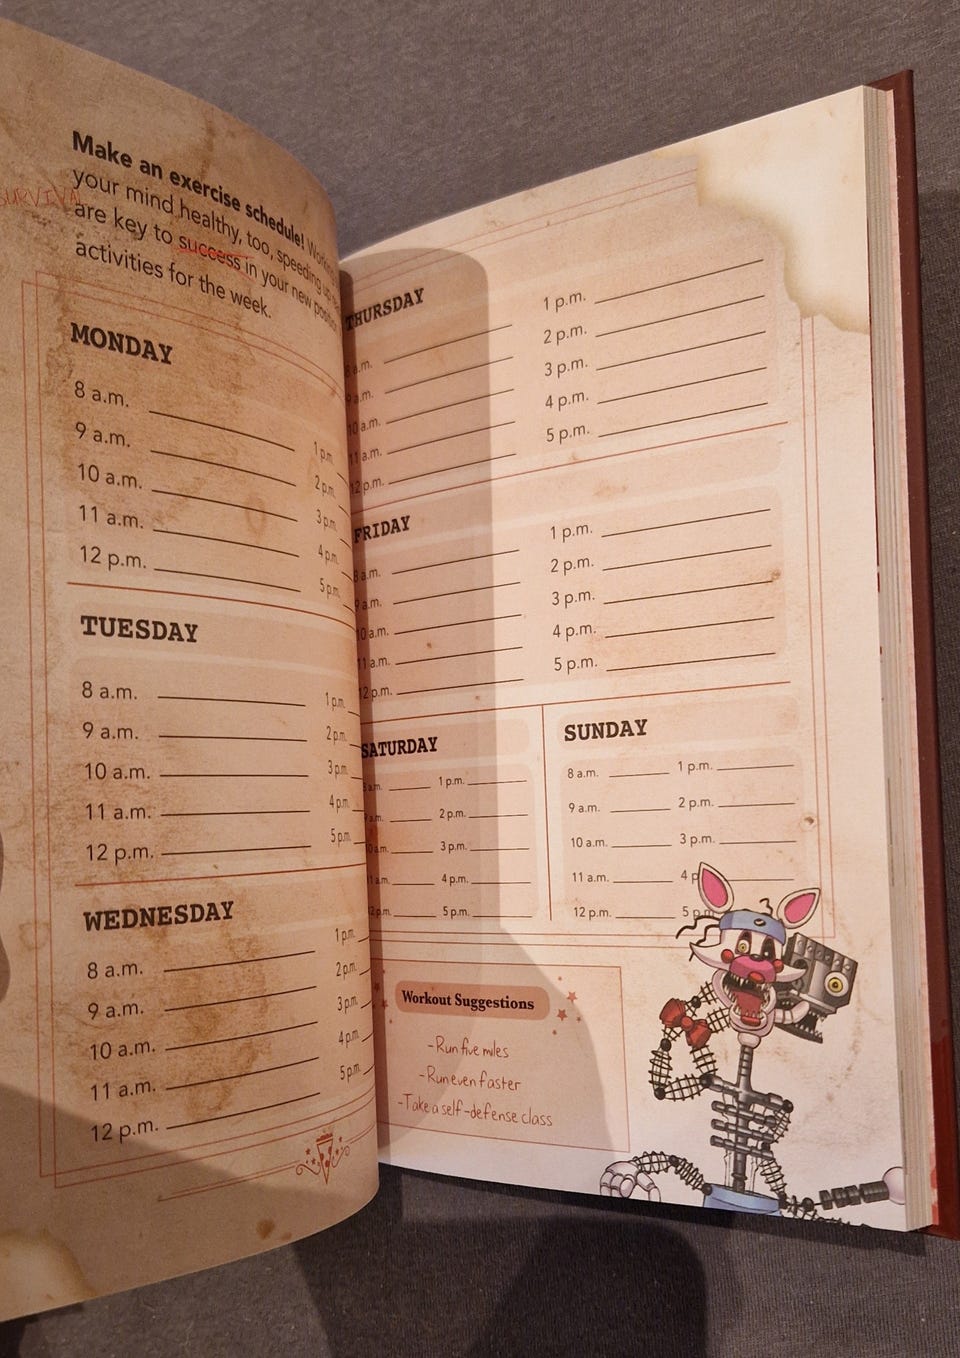 Make an exercise schedule!
your mind healthy, too, speeding up
SURVIVAL
are key to success in your new position
activities for the week.
MONDAY
8 a.m.
9 a.m.
10 a.m.
11 a.m.
12 p.m.
1 p.m.
2 p.m.
3 p.m.
4 p.m.
5 p.m.
TUESDAY
8 a.m.
9 a.m.
10 a.m.
11 a.m.
12 p.m.
1 p.m.
2 p.m.
3 p.m.
4 p.m.
5 p.m.
WEDNESDAY
8 a.m.
9 a.m.
10 a.m.
11 a.m.
12 p.m.
1 p.m.
2 p.m.
3 p.m.
4 p.m.
5 p.m.
THURSDAY
8 a.m.
9 a.m.
10 a.m.
11 a.m.
12 p.m.
1 p.m.
2 p.m.
3 p.m.
4 p.m.
5 p.m.
FRIDAY
8 a.m.
9 a.m.
10 a.m.
11 a.m.
12 p.m.
1 p.m.
2 p.m.
3 p.m.
4 p.m.
5 p.m.
SATURDAY
8 a.m.
9 a.m.
10 a.m.
11 a.m.
12 p.m.
1 p.m.
2 p.m.
3 p.m.
4 p.m.
5 p.m.
SUNDAY
8 a.m.
9 a.m.
10 a.m.
11 a.m.
12 p.m.
1 p.m.
2 p.m.
3 p.m.
4 p
5 p.m.
Workout Suggestions
-Run five miles
-Run even faster
-Take a self-defense class